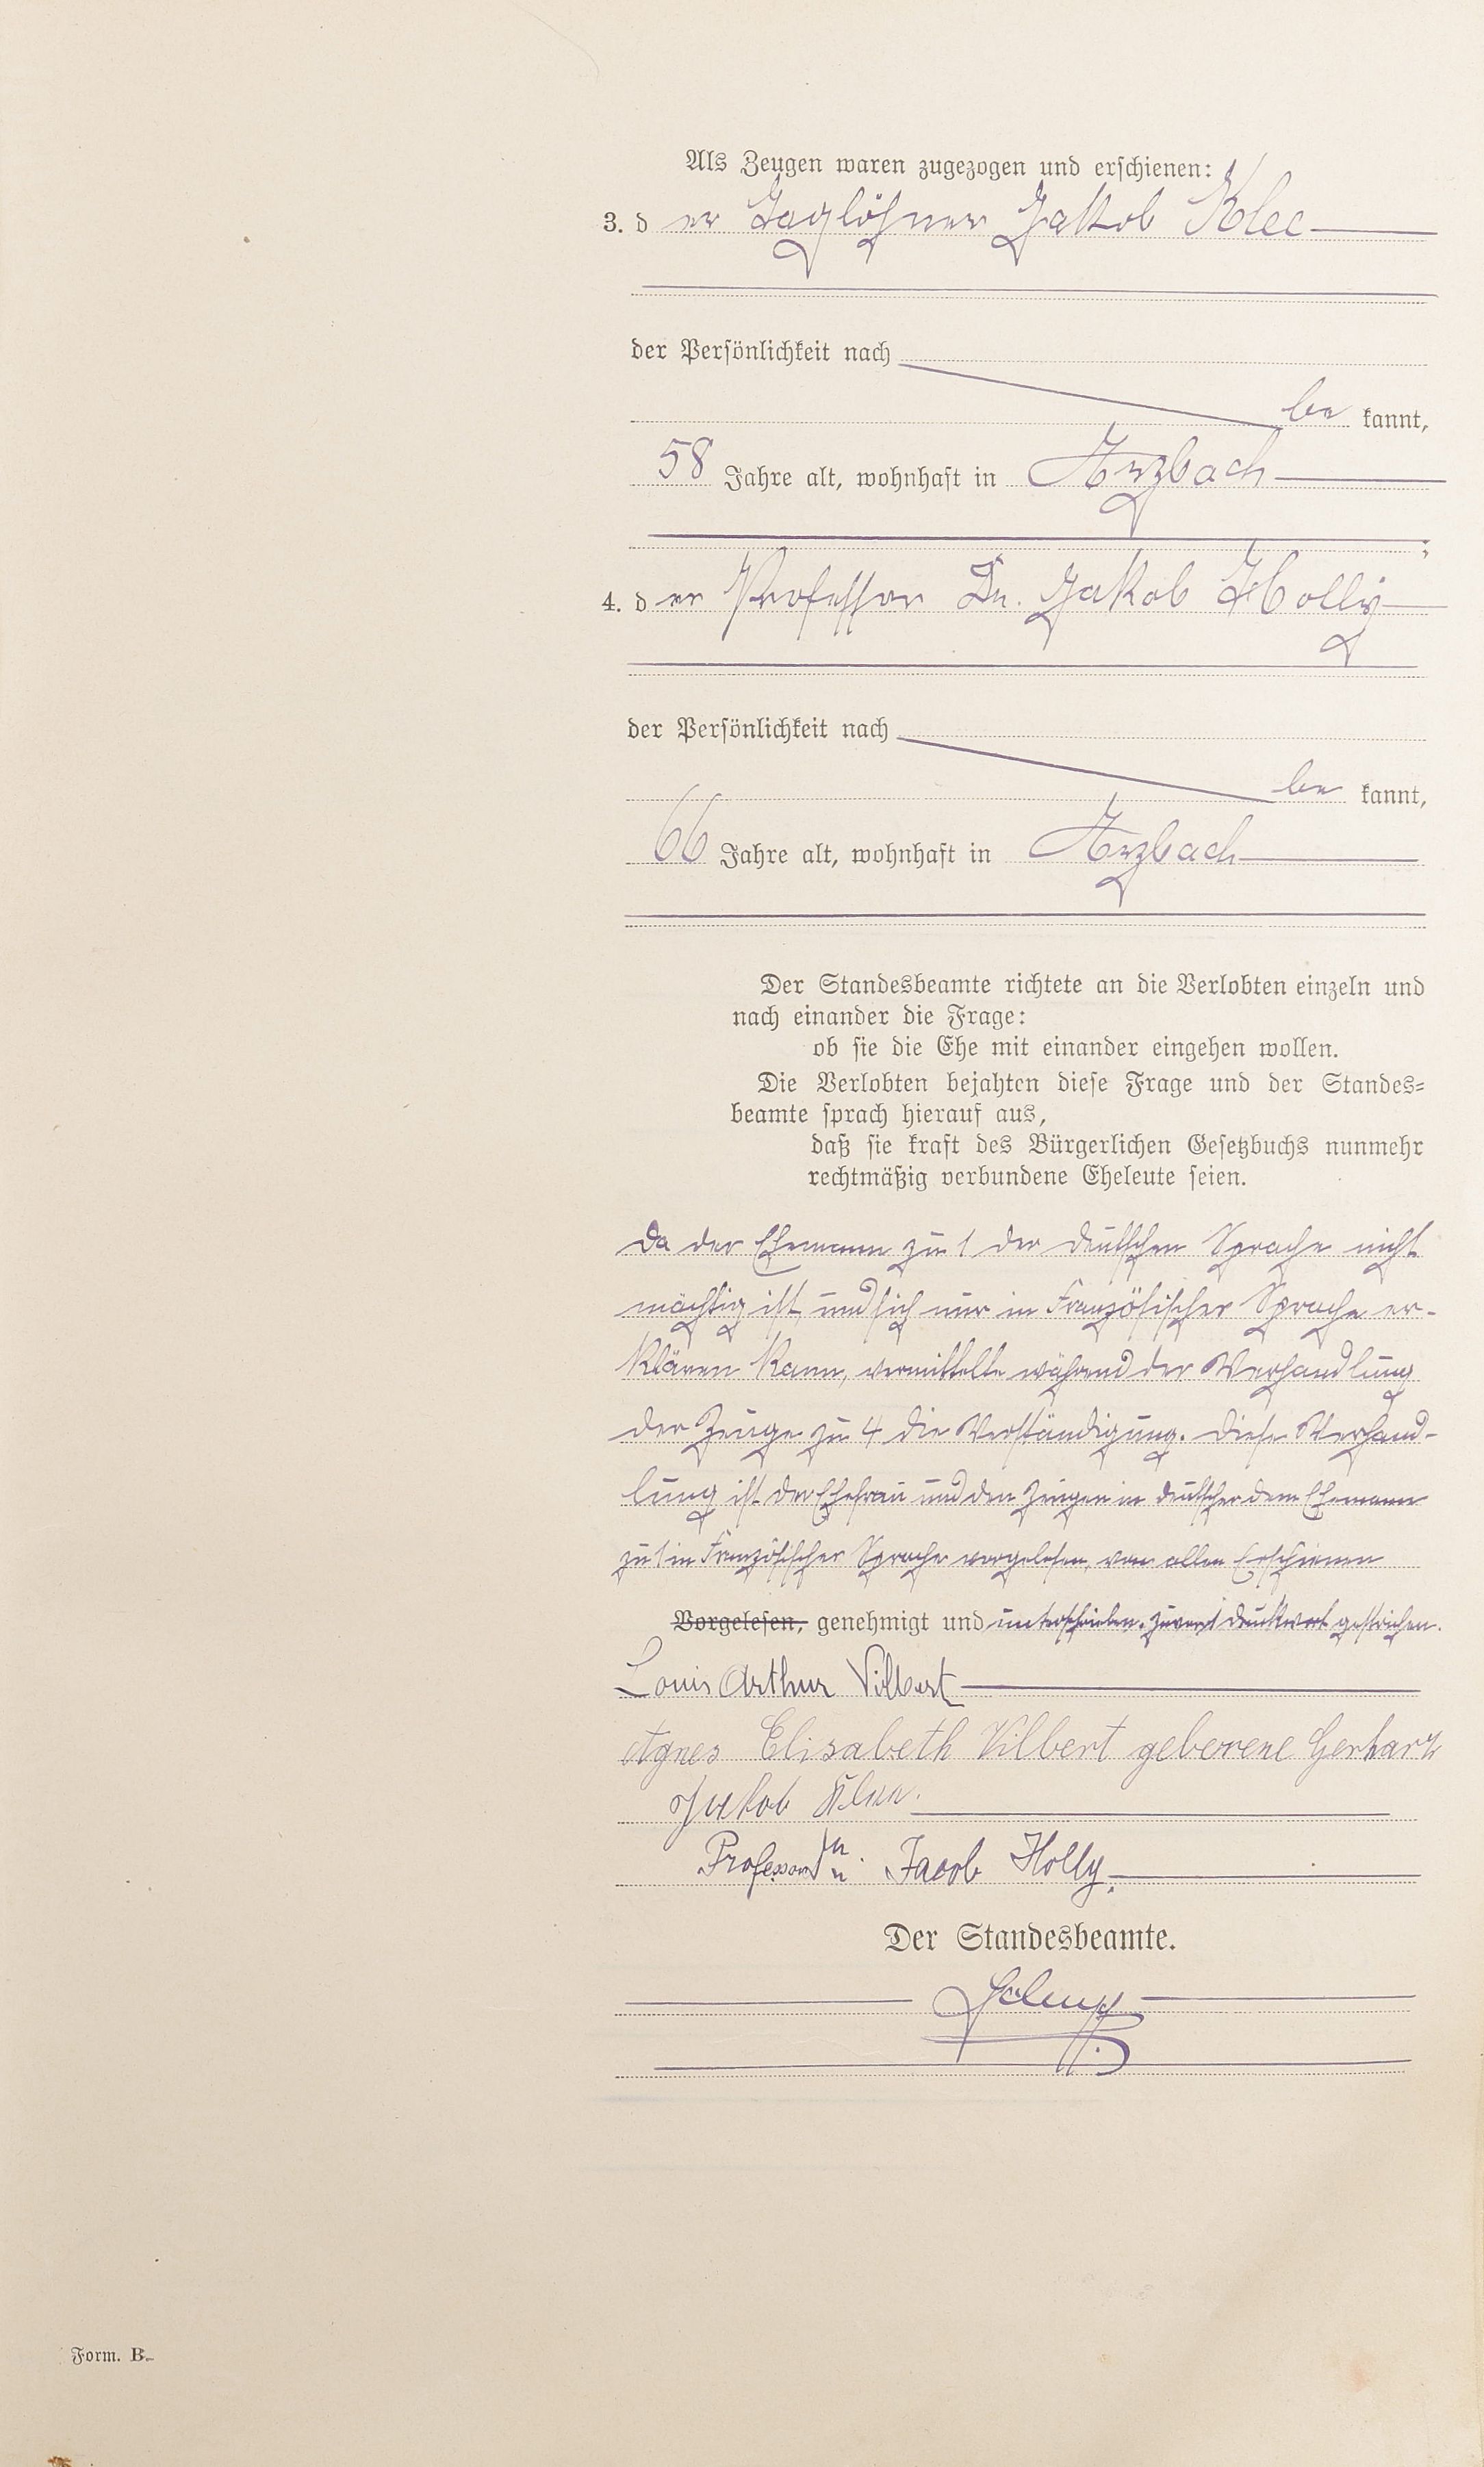 Als Zeugen waren zugezogen und erschienen:
3. der Taglöhner Jakob Klee
der Persönlichkeit nach
be kannt,
58 Jahre alt, wohnhaft in Arzbach
;
4. der Professor Dr. Jakob Holly
der Persönlichkeit nach
be kannt,
66 Jahre alt, wohnhaft in Arzbach
Der Standesbeamte richtete an die Verlobten einzeln und
nach einander die Frage:
ob sie die Ehe mit einander eingehen wollen.
Die Verlobten bejahten diese Frage und der Standes=
beamte sprach hierauf aus,
daß sie kraft des Bürgerlichen Gesetzbuchs nunmehr
rechtmäßig verbundene Eheleute seien.
Da der Ehemann zu 1 der deutschen Sprache nicht
mächtig ist und sich nur in Französischer Sprache er-
klären kann, vermittelte während der Verhandlung
der Zeuge zu 4 die Verständigung. Diese Verhand-
lung ist der Ehefrau und den Zeugen in deutscher dem Ehemann
zu 1 in Französischer Sprache vorgelesen, von allen Erschienen
Vorgelesen, genehmigt und unterschrieben. Zuvor 1 Druckwort gestrichen.
Louis Arthur Vilbert
Agnes Elisabeth Vilbert geborene Gerhartz
Jakob Klee.
Professor Dr. Jacob Holly.
Der Standesbeamte.
Form. B.